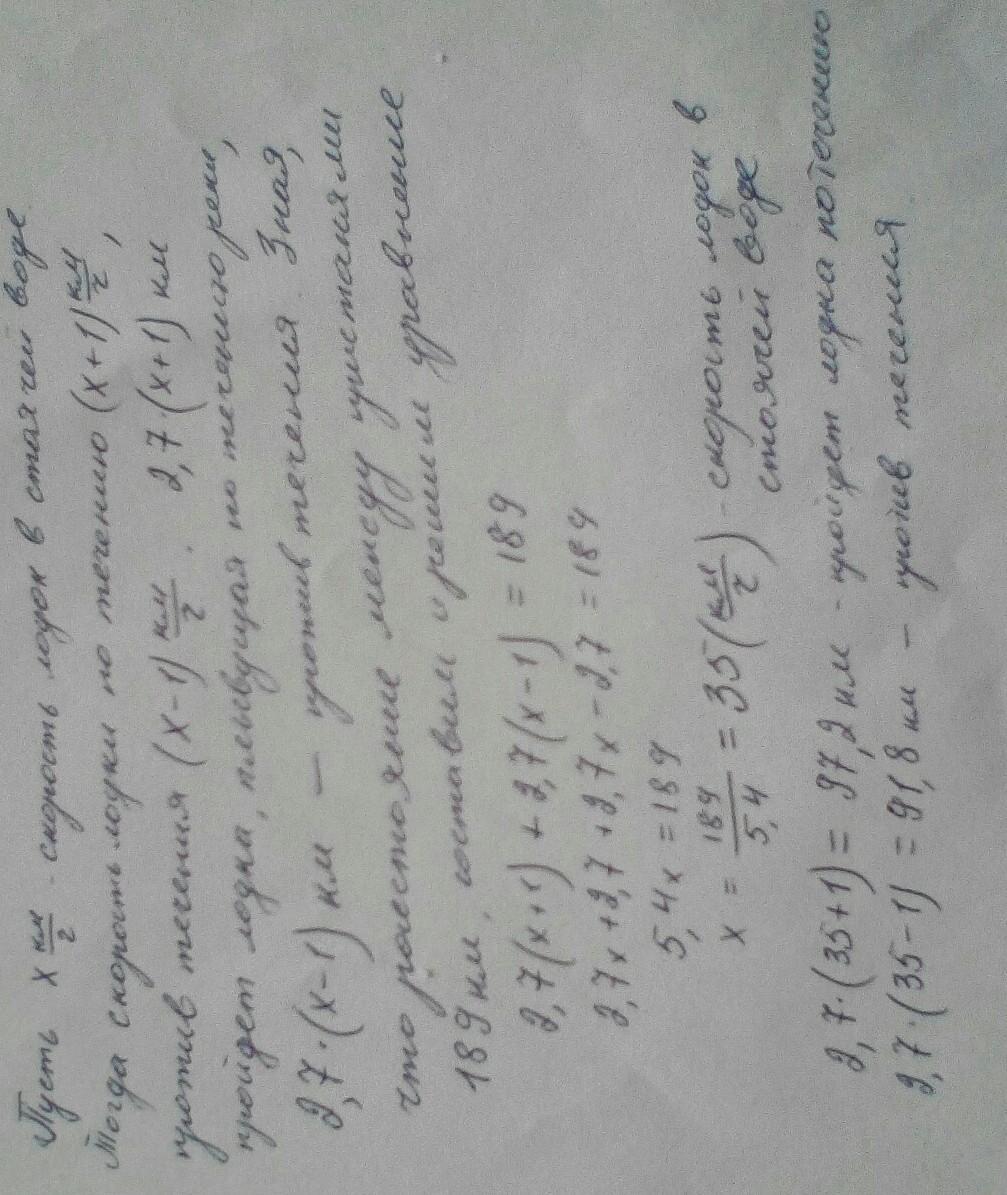 Пусть x км/г - скорость лодок в стаячей воде.
Тогда скорость лодки по течению (x+1) км/г,
против течения (x-1) км/г. 2,7·(x+1) км
пройдет лодка, плывущая по течению реки,
2,7·(x-1) км — против течения. Зная,
что расстояние между пристанями
189 км, составим и решим уравнение
2,7(x+1)+2,7(x-1)=189
2,7x+2,7+2,7x-2,7=189
5,4x=189
x=189/5,4=35(км/г) - скорость лодок в
стоячей воде
2,7·(35+1)=97,2 км - пройдет лодка по течению
2,7·(35-1)=91,8 км - против течения